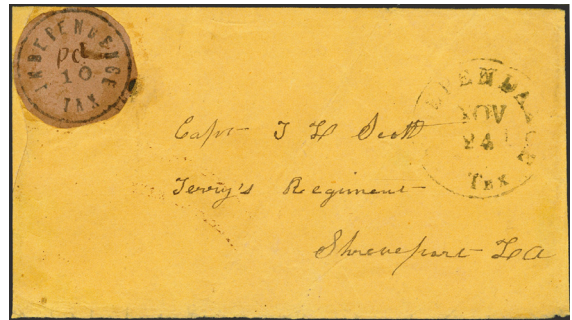 INDEPENDENCE TEX
Pd
10
NOV
24
Tex
Capt J H Scott
Terry's Regiment
Shreveport LA